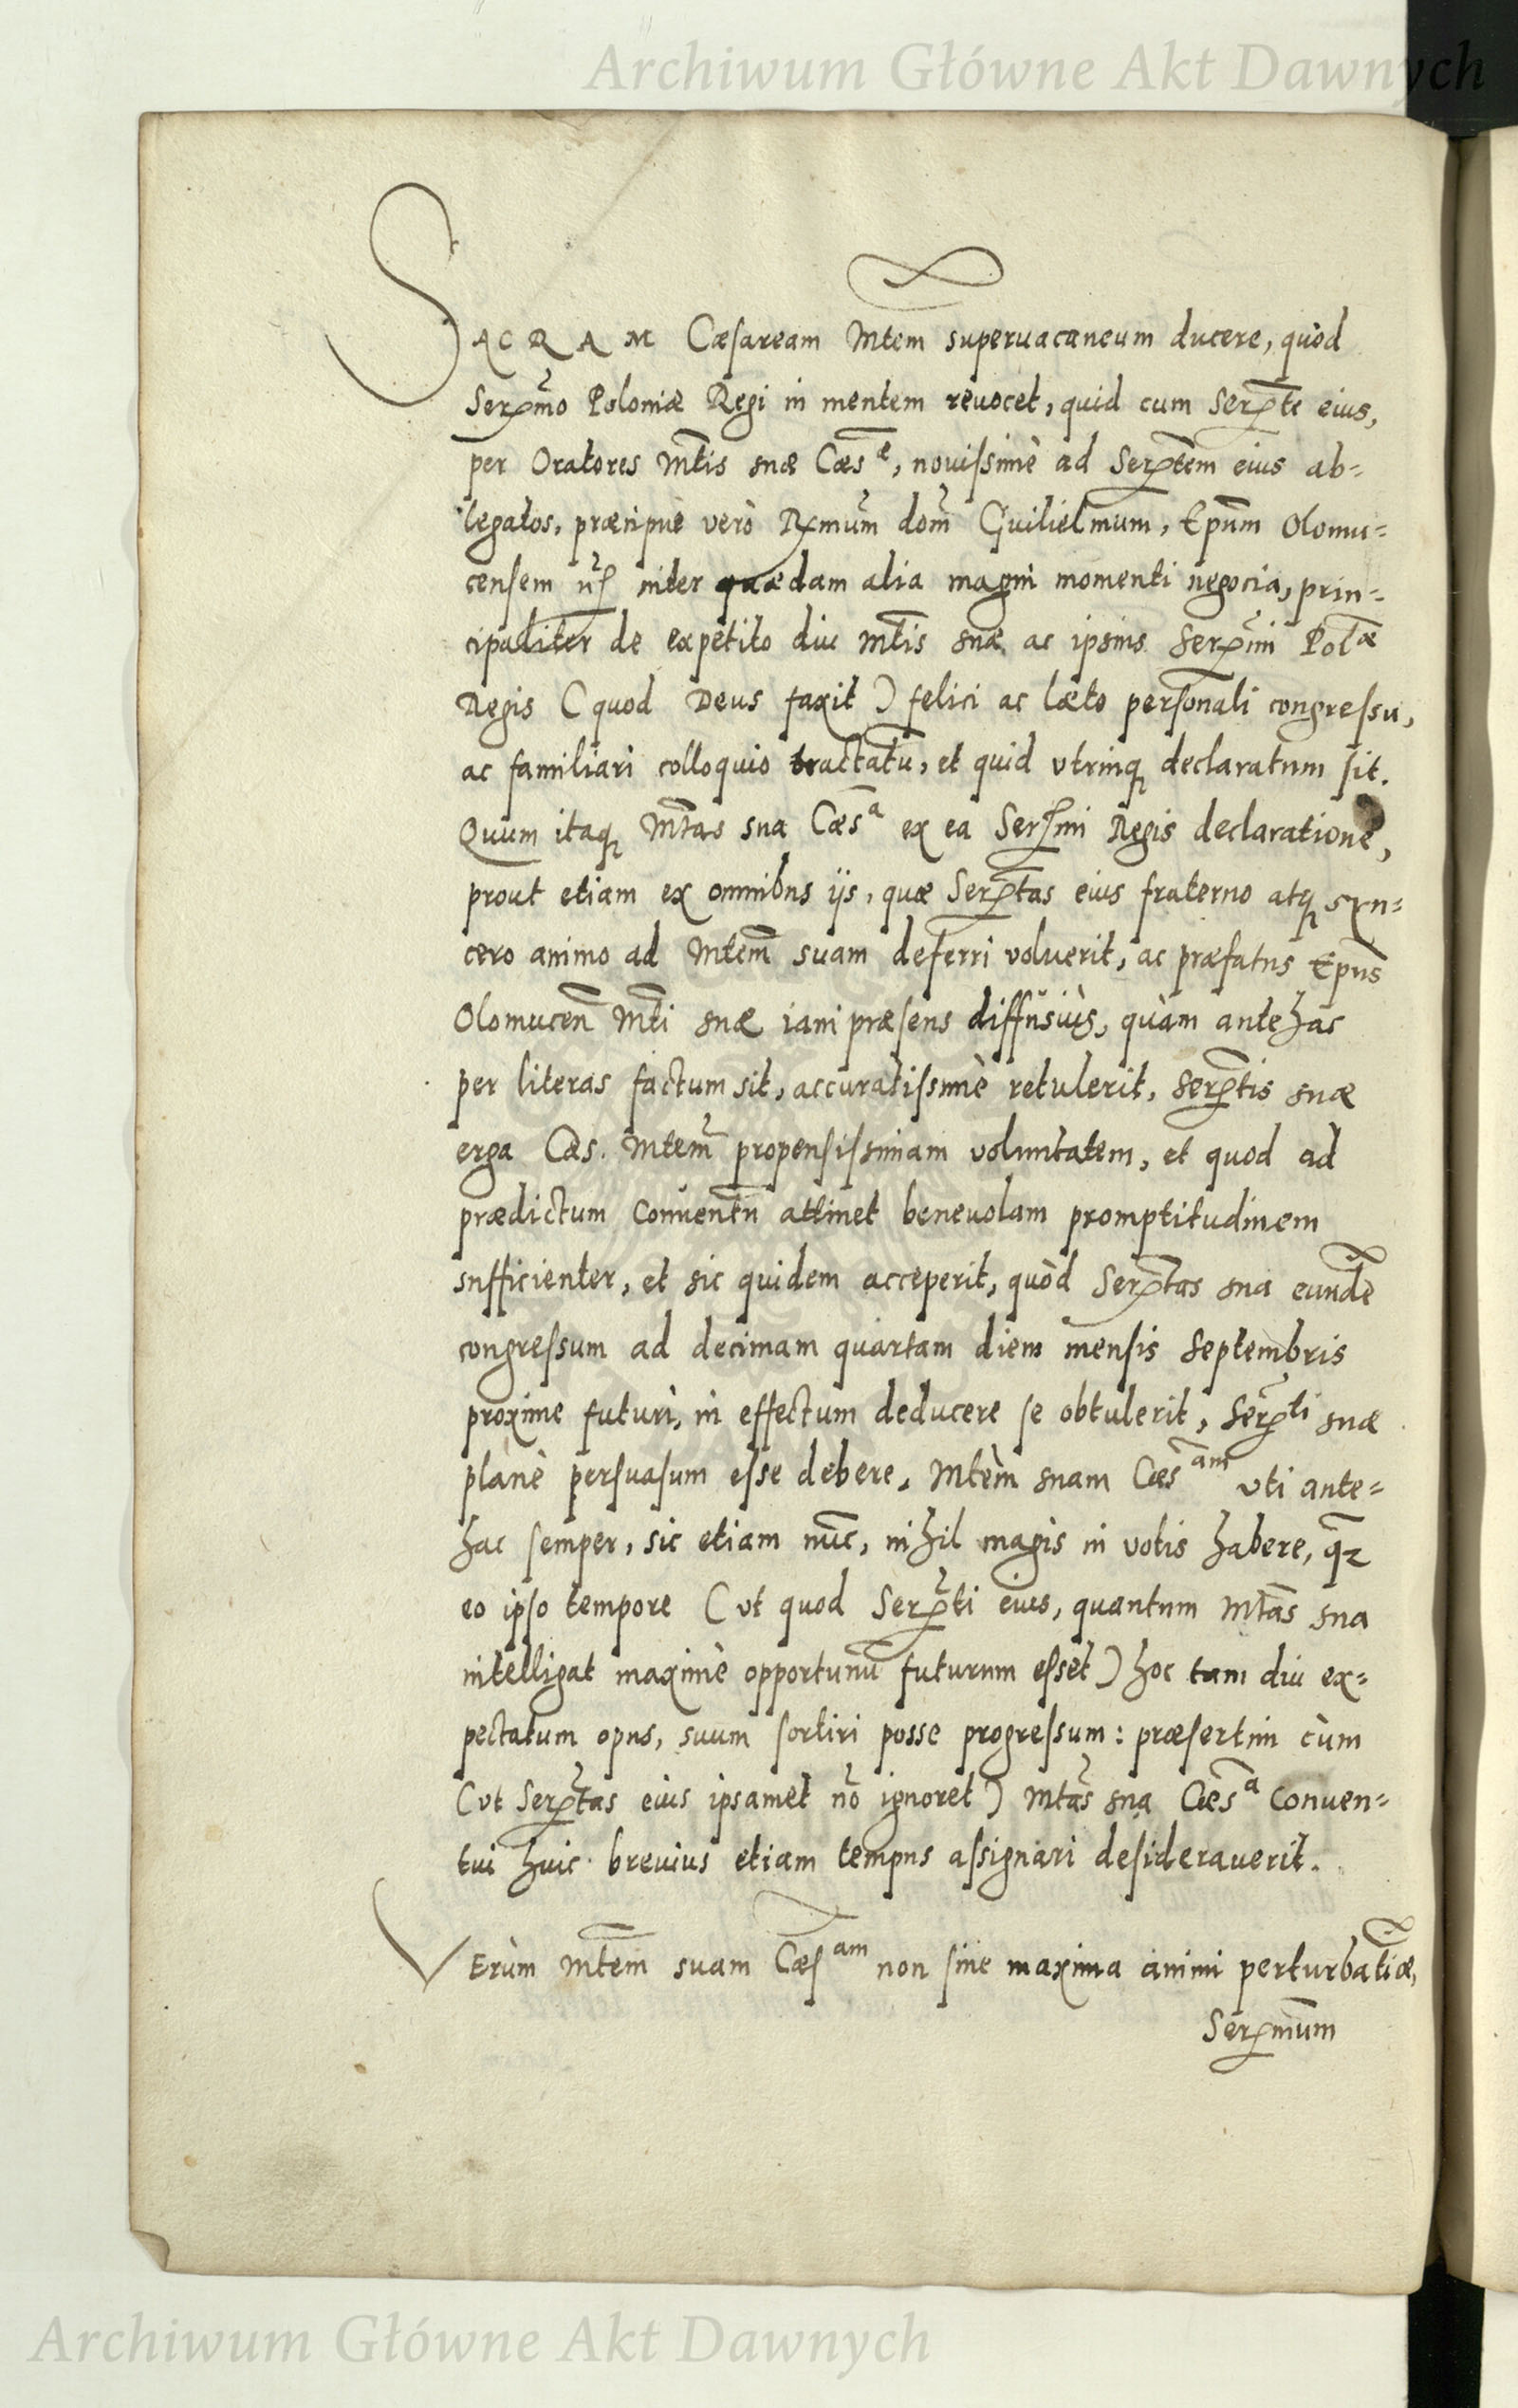 Archiwum Główne Akt Dawnych
SACRAM Cæsaream Mtem superuacaneum ducere, quòd
Serᵐᵒ Poloniæ Regi in mentem reuocet, quid cum Serᵗᵉ eius,
per Oratores Mtis suæ Cæsᵉ, nouissimè ad Serᵗᵉᵐ eius ab=
legatos, præcipuè verò Rxmum dom̃ Guilielmum, Epũm Olomu=
censem inter quædam alia magni momenti negocia, prin=
cipaliter de expetito diu Mtis suæ ac ipsius Serᵐⁱ Polæ
Regis (quod Deus faxit) felici ac læto personali congressu,
ac familiari colloquio tractatũ, et quid vtrinq declaratum sit.
Quum itaq Mtas sua Cæsᵃ ex ea Serᵐⁱ Regis declaratione,
prout etiam ex omnibus ijs, quæ Serᵗᵃˢ eius fraterno atq syn=
cero animo ad Mtem suam deferri voluerit, ac præfatus Epũs
Olomuceñ Mti suæ iam præsens diffusiùs, quàm antehac
per literas factum sit, accuratissimè retulerit, Serᵗⁱˢ suæ
erga Cæs. Mtem propensissimam voluntatem, et quod ad
prædictum Conuentũ attinet beneuolam promptitudinem
sufficienter, et sic quidem acceperit, quòd Serᵗᵃˢ sua eundẽ
congressum ad decimam quartam diem mensis Septembris
proxime futuri, in effectum deducere se obtulerit, Serᵗⁱ suæ
planè persuasum esse debere, Mtem suam Cæsᵃᵐ vti ante=
hac semper, sic etiam nũc, nihil magis in votis habere, q̃
eo ipso tempore (vt quod Serᵗⁱ eius, quantum Mtas sua
intelligat maximè opportunũ futurum esset) hoc tam diu ex=
pectatum opus, suum sortiri posse progressum: præsertim cùm
(vt Serᵗᵃˢ eius ipsamet nõ ignoret) Mtas sua Cæsᵃ Conuen=
tui huic breuius etiam tempus assignari desiderauerit.
VErùm Mtem suam Cæsᵃᵐ non sine maxima animi perturbatiõe,
Serᵐᵘᵐ
Archiwum Główne Akt Dawnych